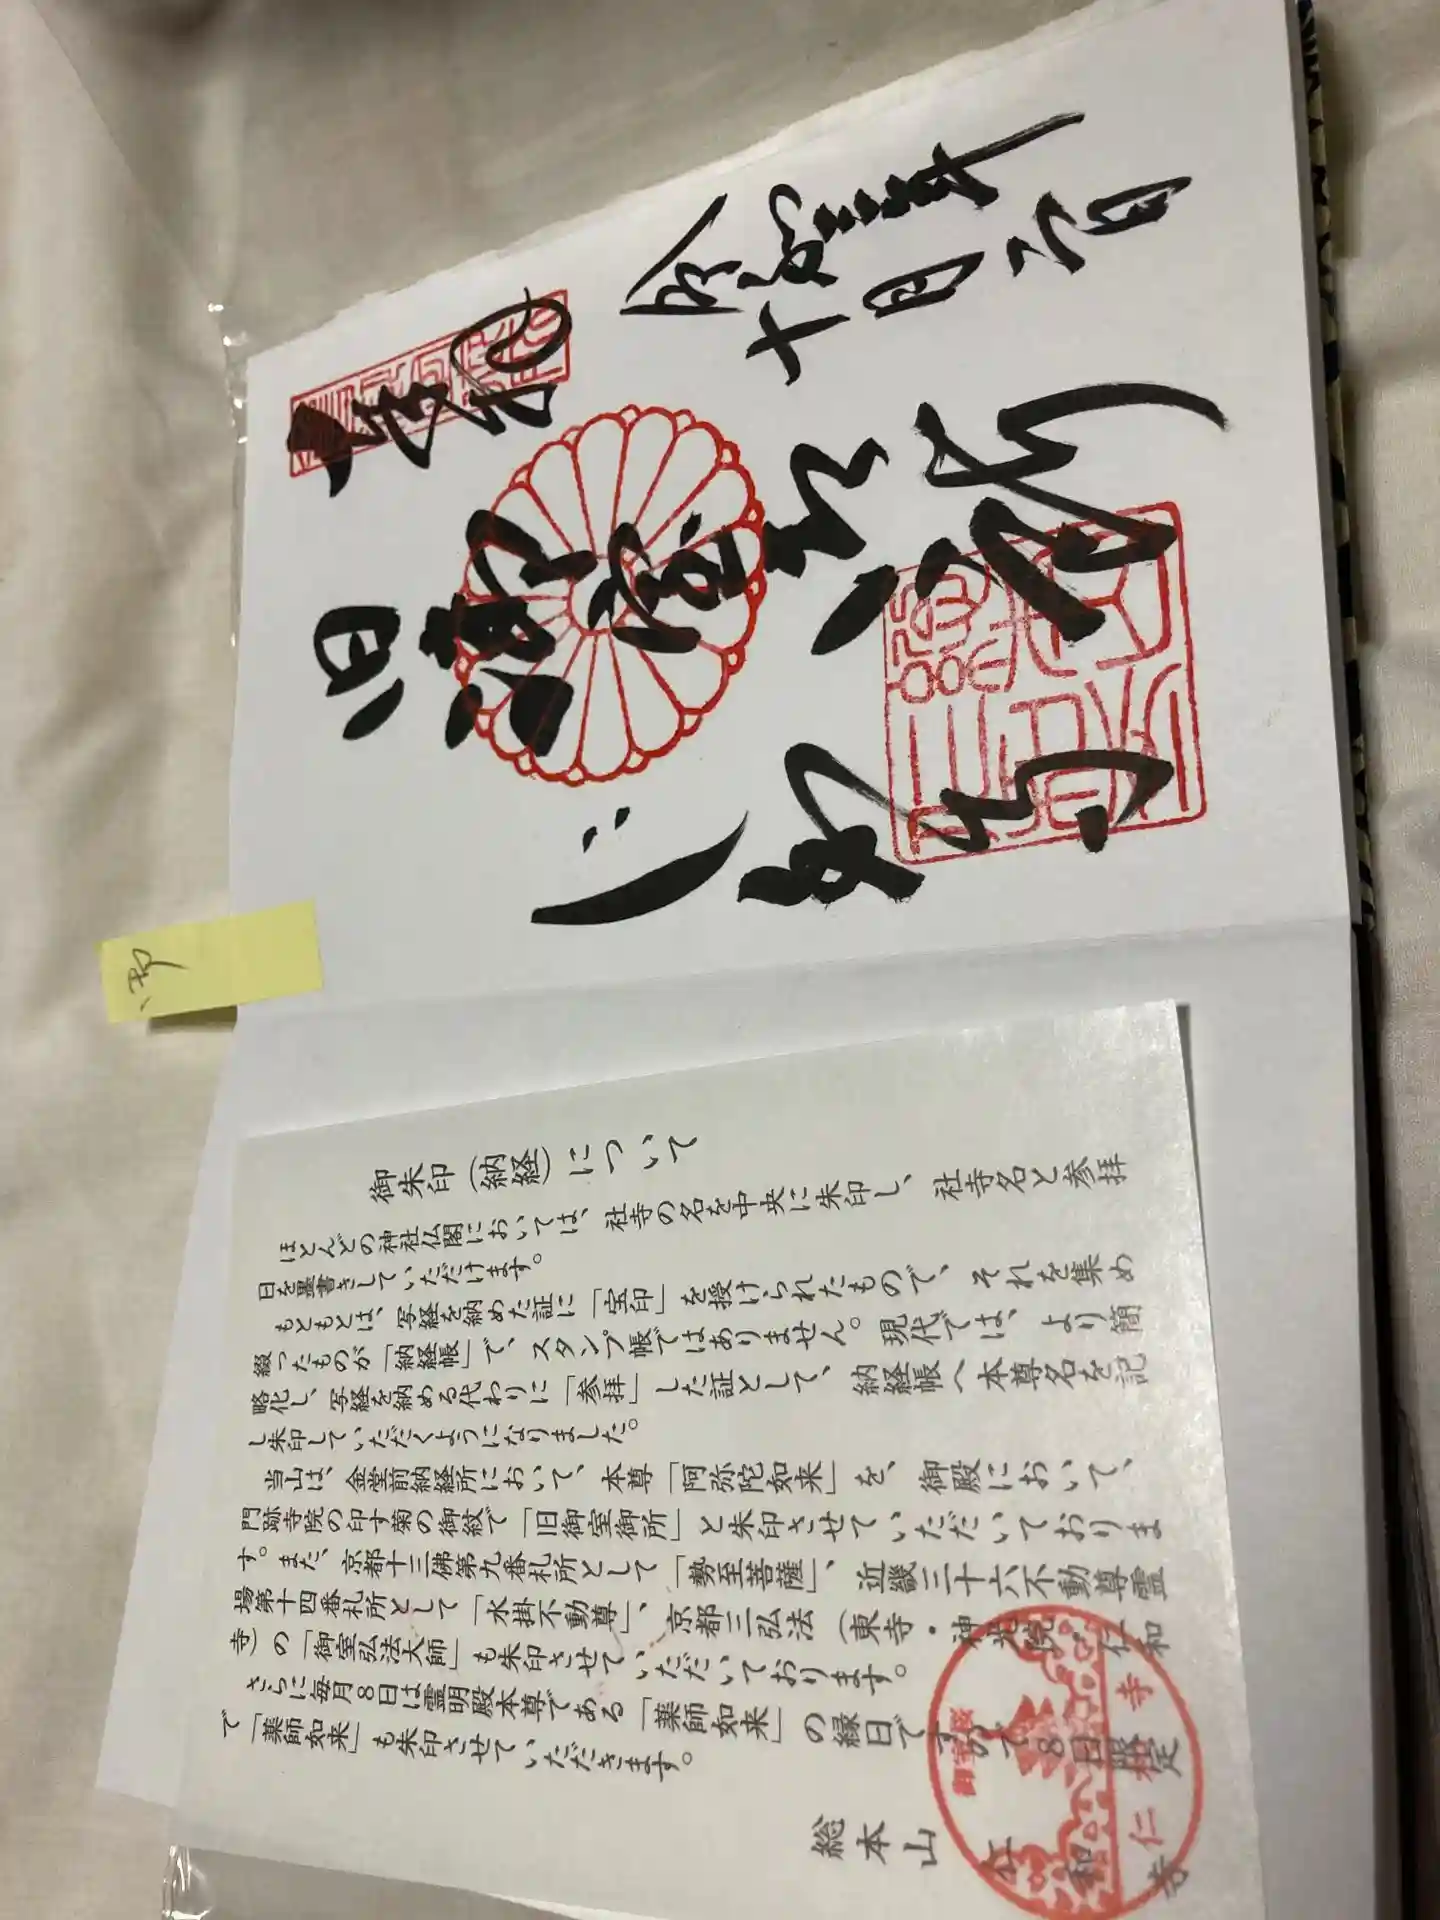 奉拝
令和三年
十月二日
旧御室御所
仁和寺
御朱印(納経)について
ほとんどの神社仏閣においては、社寺の名を中央に朱印し、社寺名と参拝
日を墨書きしていただけます。
もともとは、写経を納めた証に「宝印」を授けられたもので、それを集め
綴ったものが「納経帳」で、スタンプ帳ではありません。現代では、より簡
略化し、写経を納める代わりに「参拝」した証として、納経帳へ本尊名を記
し朱印していただくようになりました。
当山は、金堂前納経所において、本尊「阿弥陀如来」を、御殿において、
門跡寺院の印す菊の御紋で「旧御室御所」と朱印させていただいておりま
す。また、京都十三佛第九番札所として「勢至菩薩」、近畿三十六不動尊霊
場第十四番札所として「水掛不動尊」、京都三弘法(東寺・神光院・仁和
寺)の「御室弘法大師」も朱印させていただいております。
さらに毎月8日は霊明殿本尊である「薬師如来」の縁日ですので8日限定
で「薬師如来」も朱印させていただきます。
総本山 仁和寺
御室桜
仁和寺